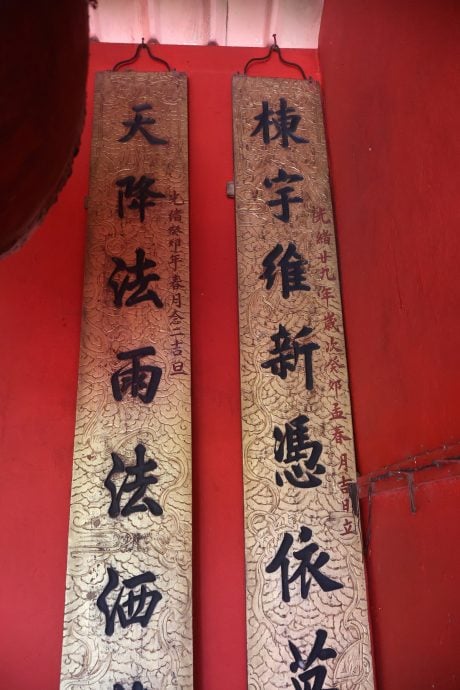 棟宇維新憑依萬
光緒廿九年歲次癸卯孟春月吉日立
天降法雨法洒
光緒癸卯年春月念二吉旦